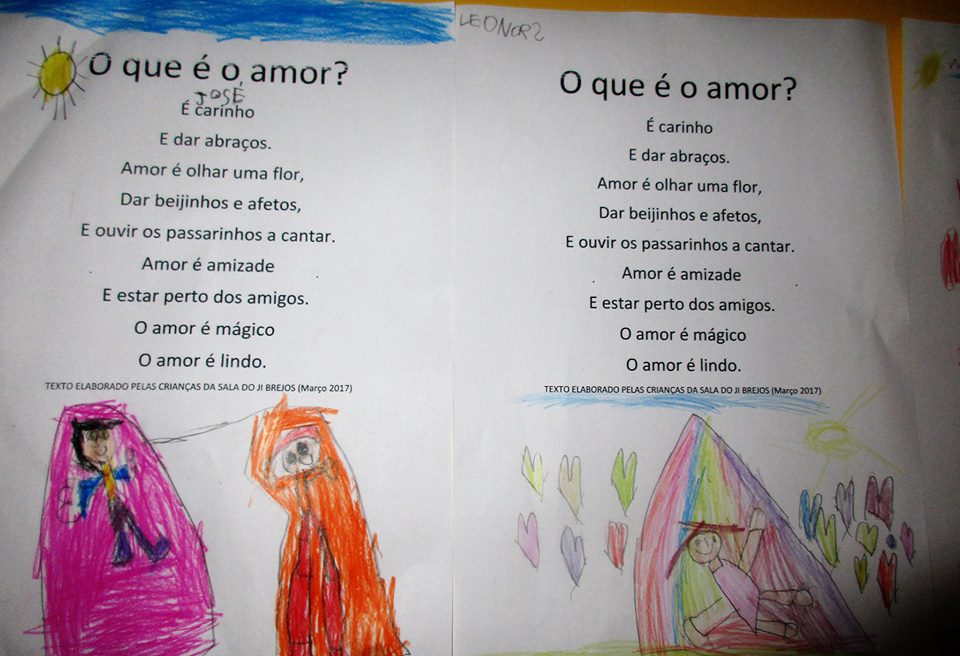 O que é o amor?
JOSÉ
É carinho
E dar abraços.
Amor é olhar uma flor,
Dar beijinhos e afetos,
E ouvir os passarinhos a cantar.
Amor é amizade
E estar perto dos amigos.
O amor é mágico
O amor é lindo.
TEXTO ELABORADO PELAS CRIANÇAS DA SALA DO JI BREJOS (Março 2017)
LEONOR
O que é o amor?
É carinho
E dar abraços.
Amor é olhar uma flor,
Dar beijinhos e afetos,
E ouvir os passarinhos a cantar.
Amor é amizade
E estar perto dos amigos.
O amor é mágico
O amor é lindo.
TEXTO ELABORADO PELAS CRIANÇAS DA SALA DO JI BREJOS (Março 2017)